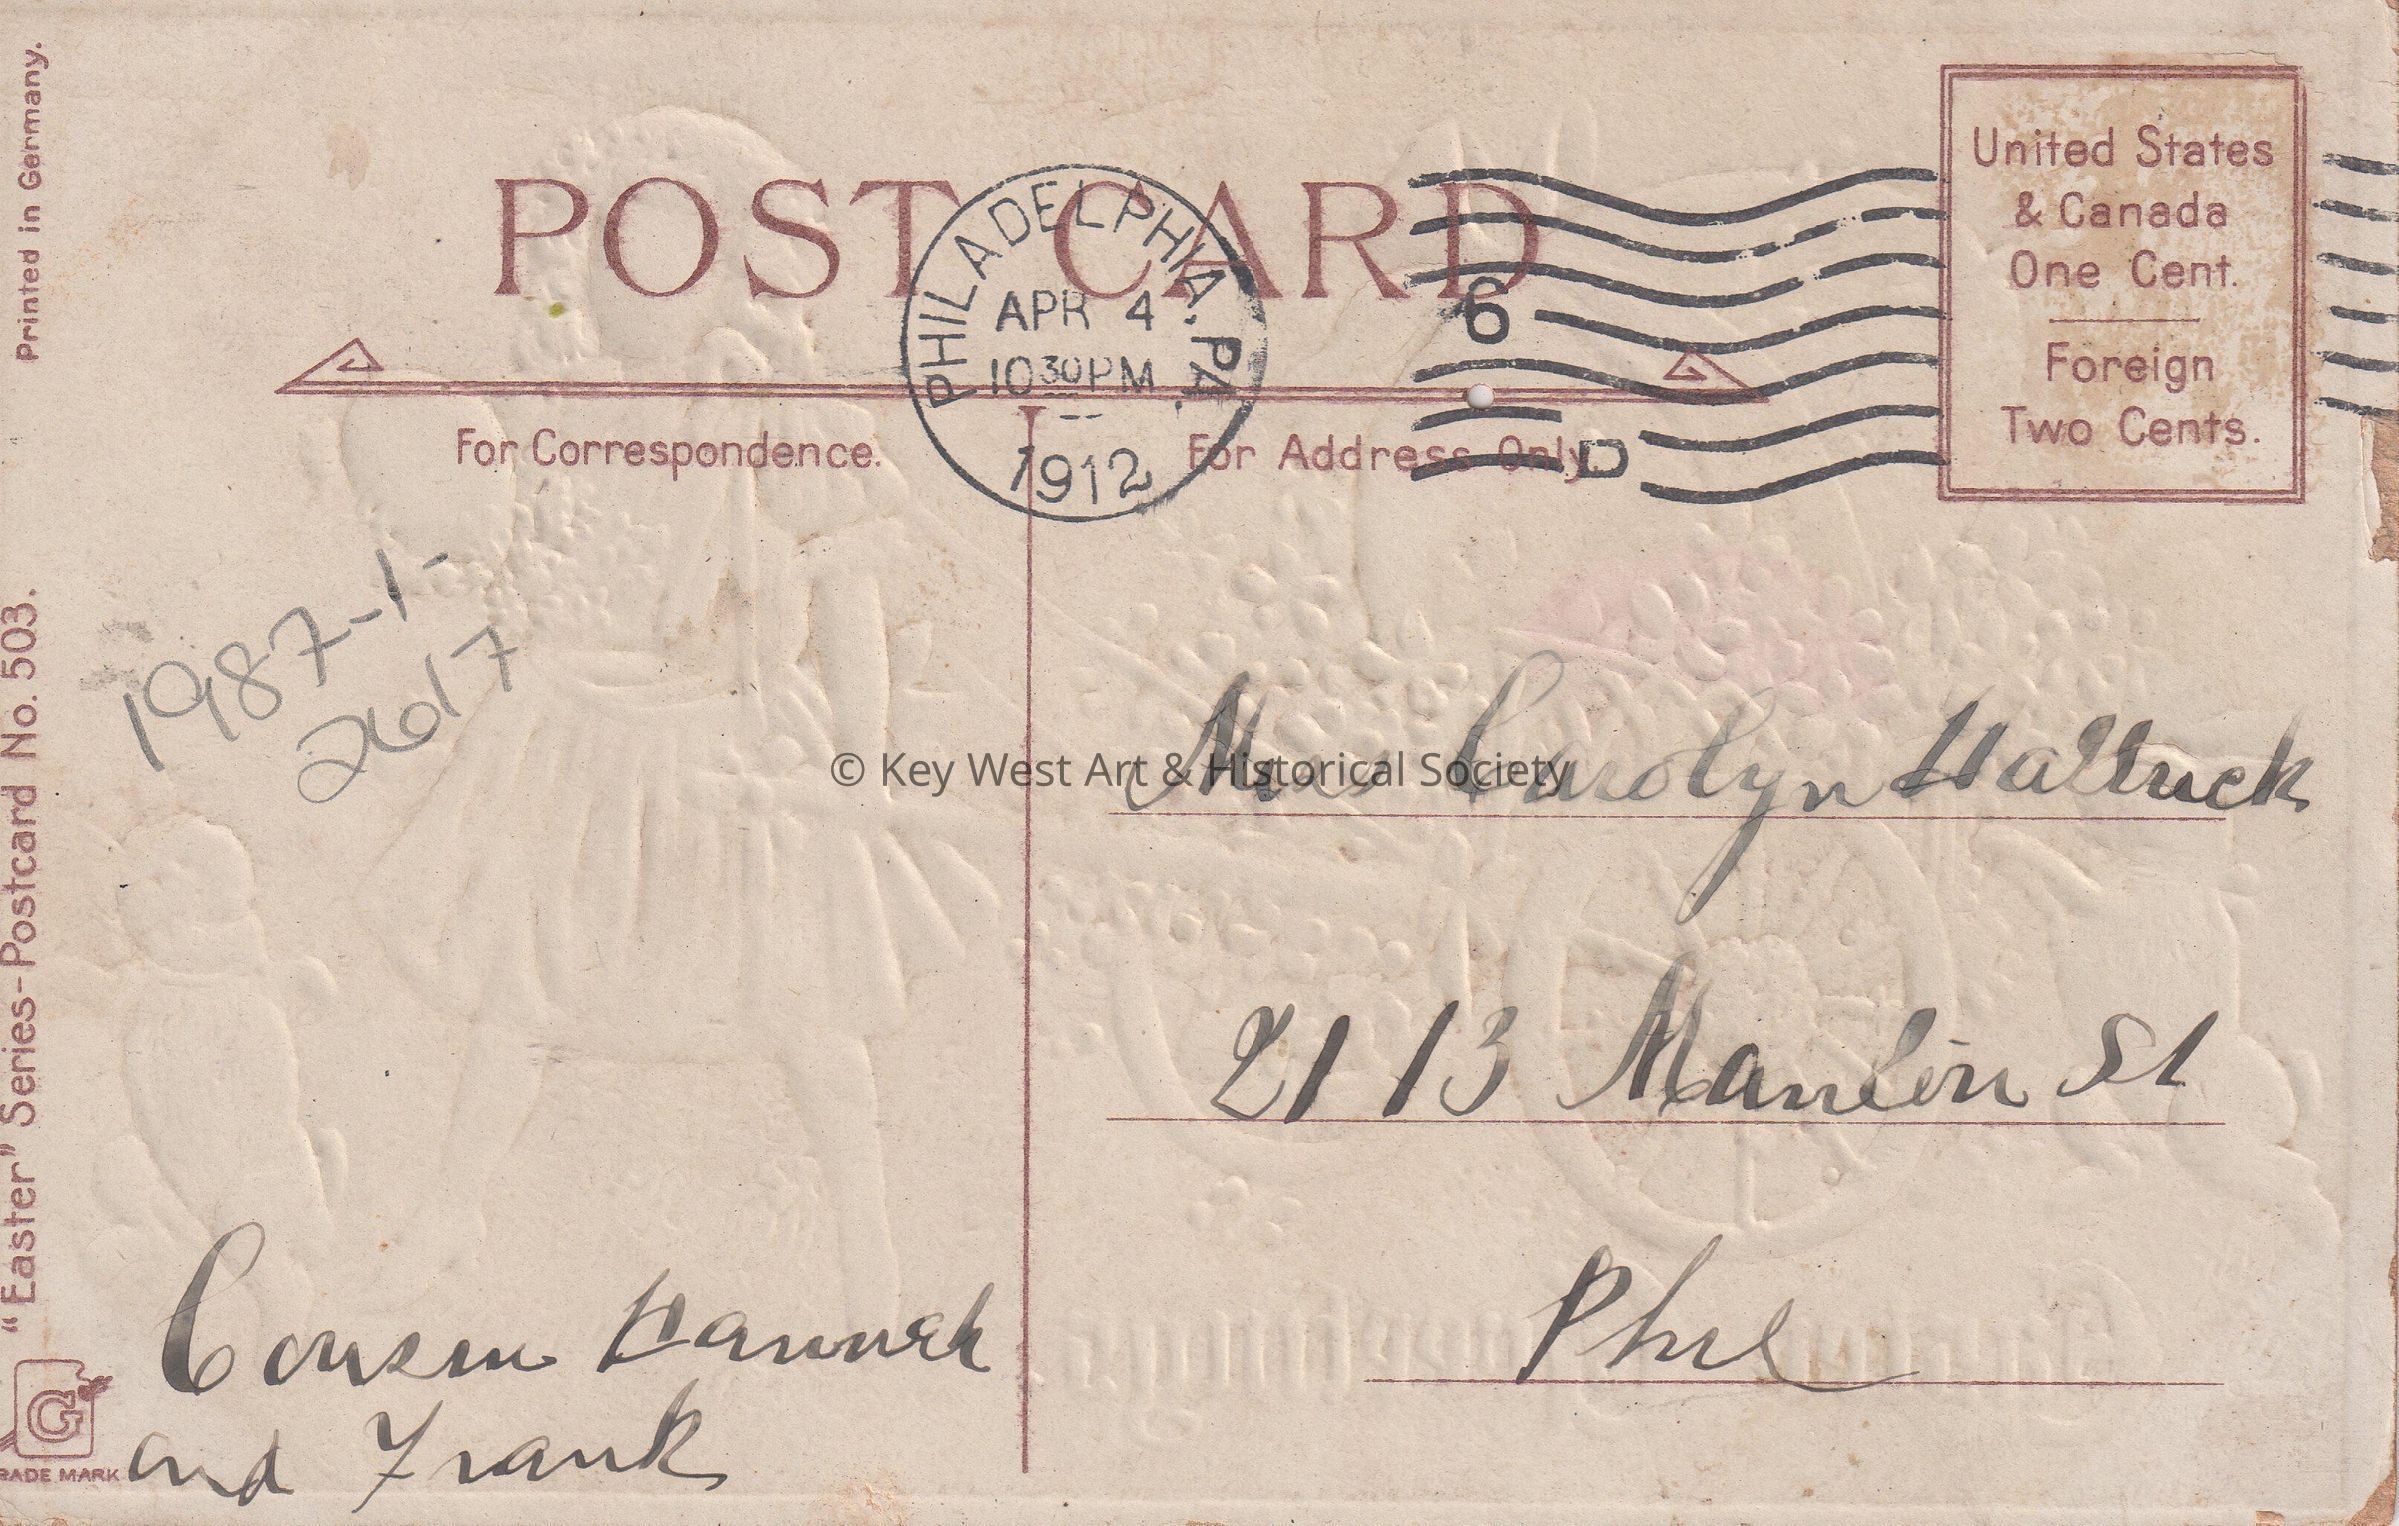 Printed in Germany.
"Easter" Series-Postcard No. 503.
G
TRADE MARK
POST CARD
PHILADELPHIA. PA.
APR 4
10 30 PM
1912
6
D
United States
& Canada
One Cent.
Foreign
Two Cents.
For Correspondence.
For Address Only.
1987-1-
2617
© Key West Art & Historical Society
Carolyn
2113 St
Phil
Cousin Hannah
and Frank